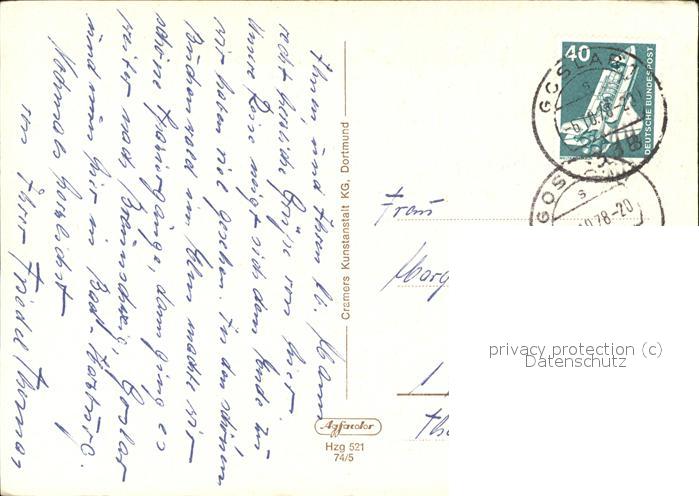 Ihnen und Ihrem lb. Mann
recht herzliche Grüße von hier.
Unsere Reise neigt sich dem Ende zu
wir haben viel gesehen. In den schönen
machte wir
schöne Spaziergänge, dann ging es
weiter nach Braunschweig, Goslar
und nun hier in Bad-Harzburg.
Nochmals herzlichst
von Ihrer Friedel Thomas
Cramers Kunstanstalt KG, Dortmund
Agfacolor
Hzg 521
74/5
40
DEUTSCHE BUNDESPOST
GOSLAR 1
s
GOS
s
.78-20
Frau
Marg
1
privacy protection (c)
Datenschutz